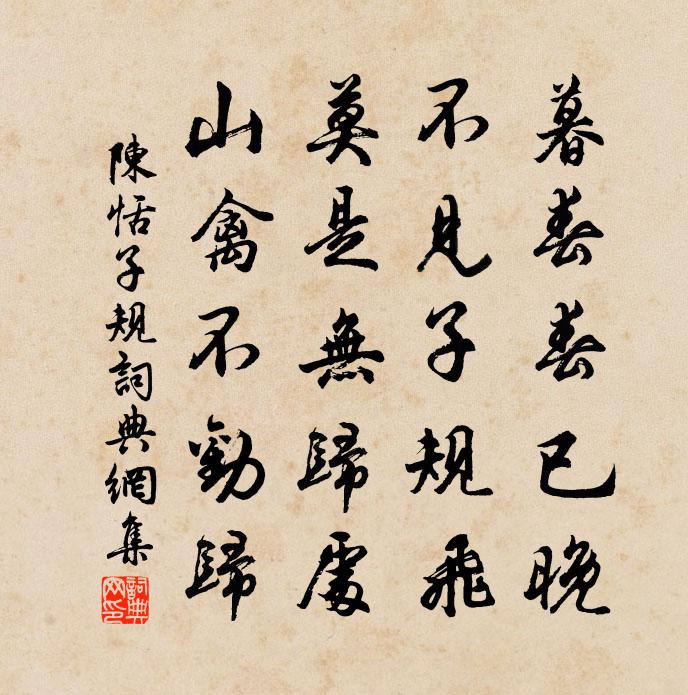 暮春春已晚
不見子規飛
莫是無歸處
山禽不勸歸
陳恬子規詞典網集
詞典網印